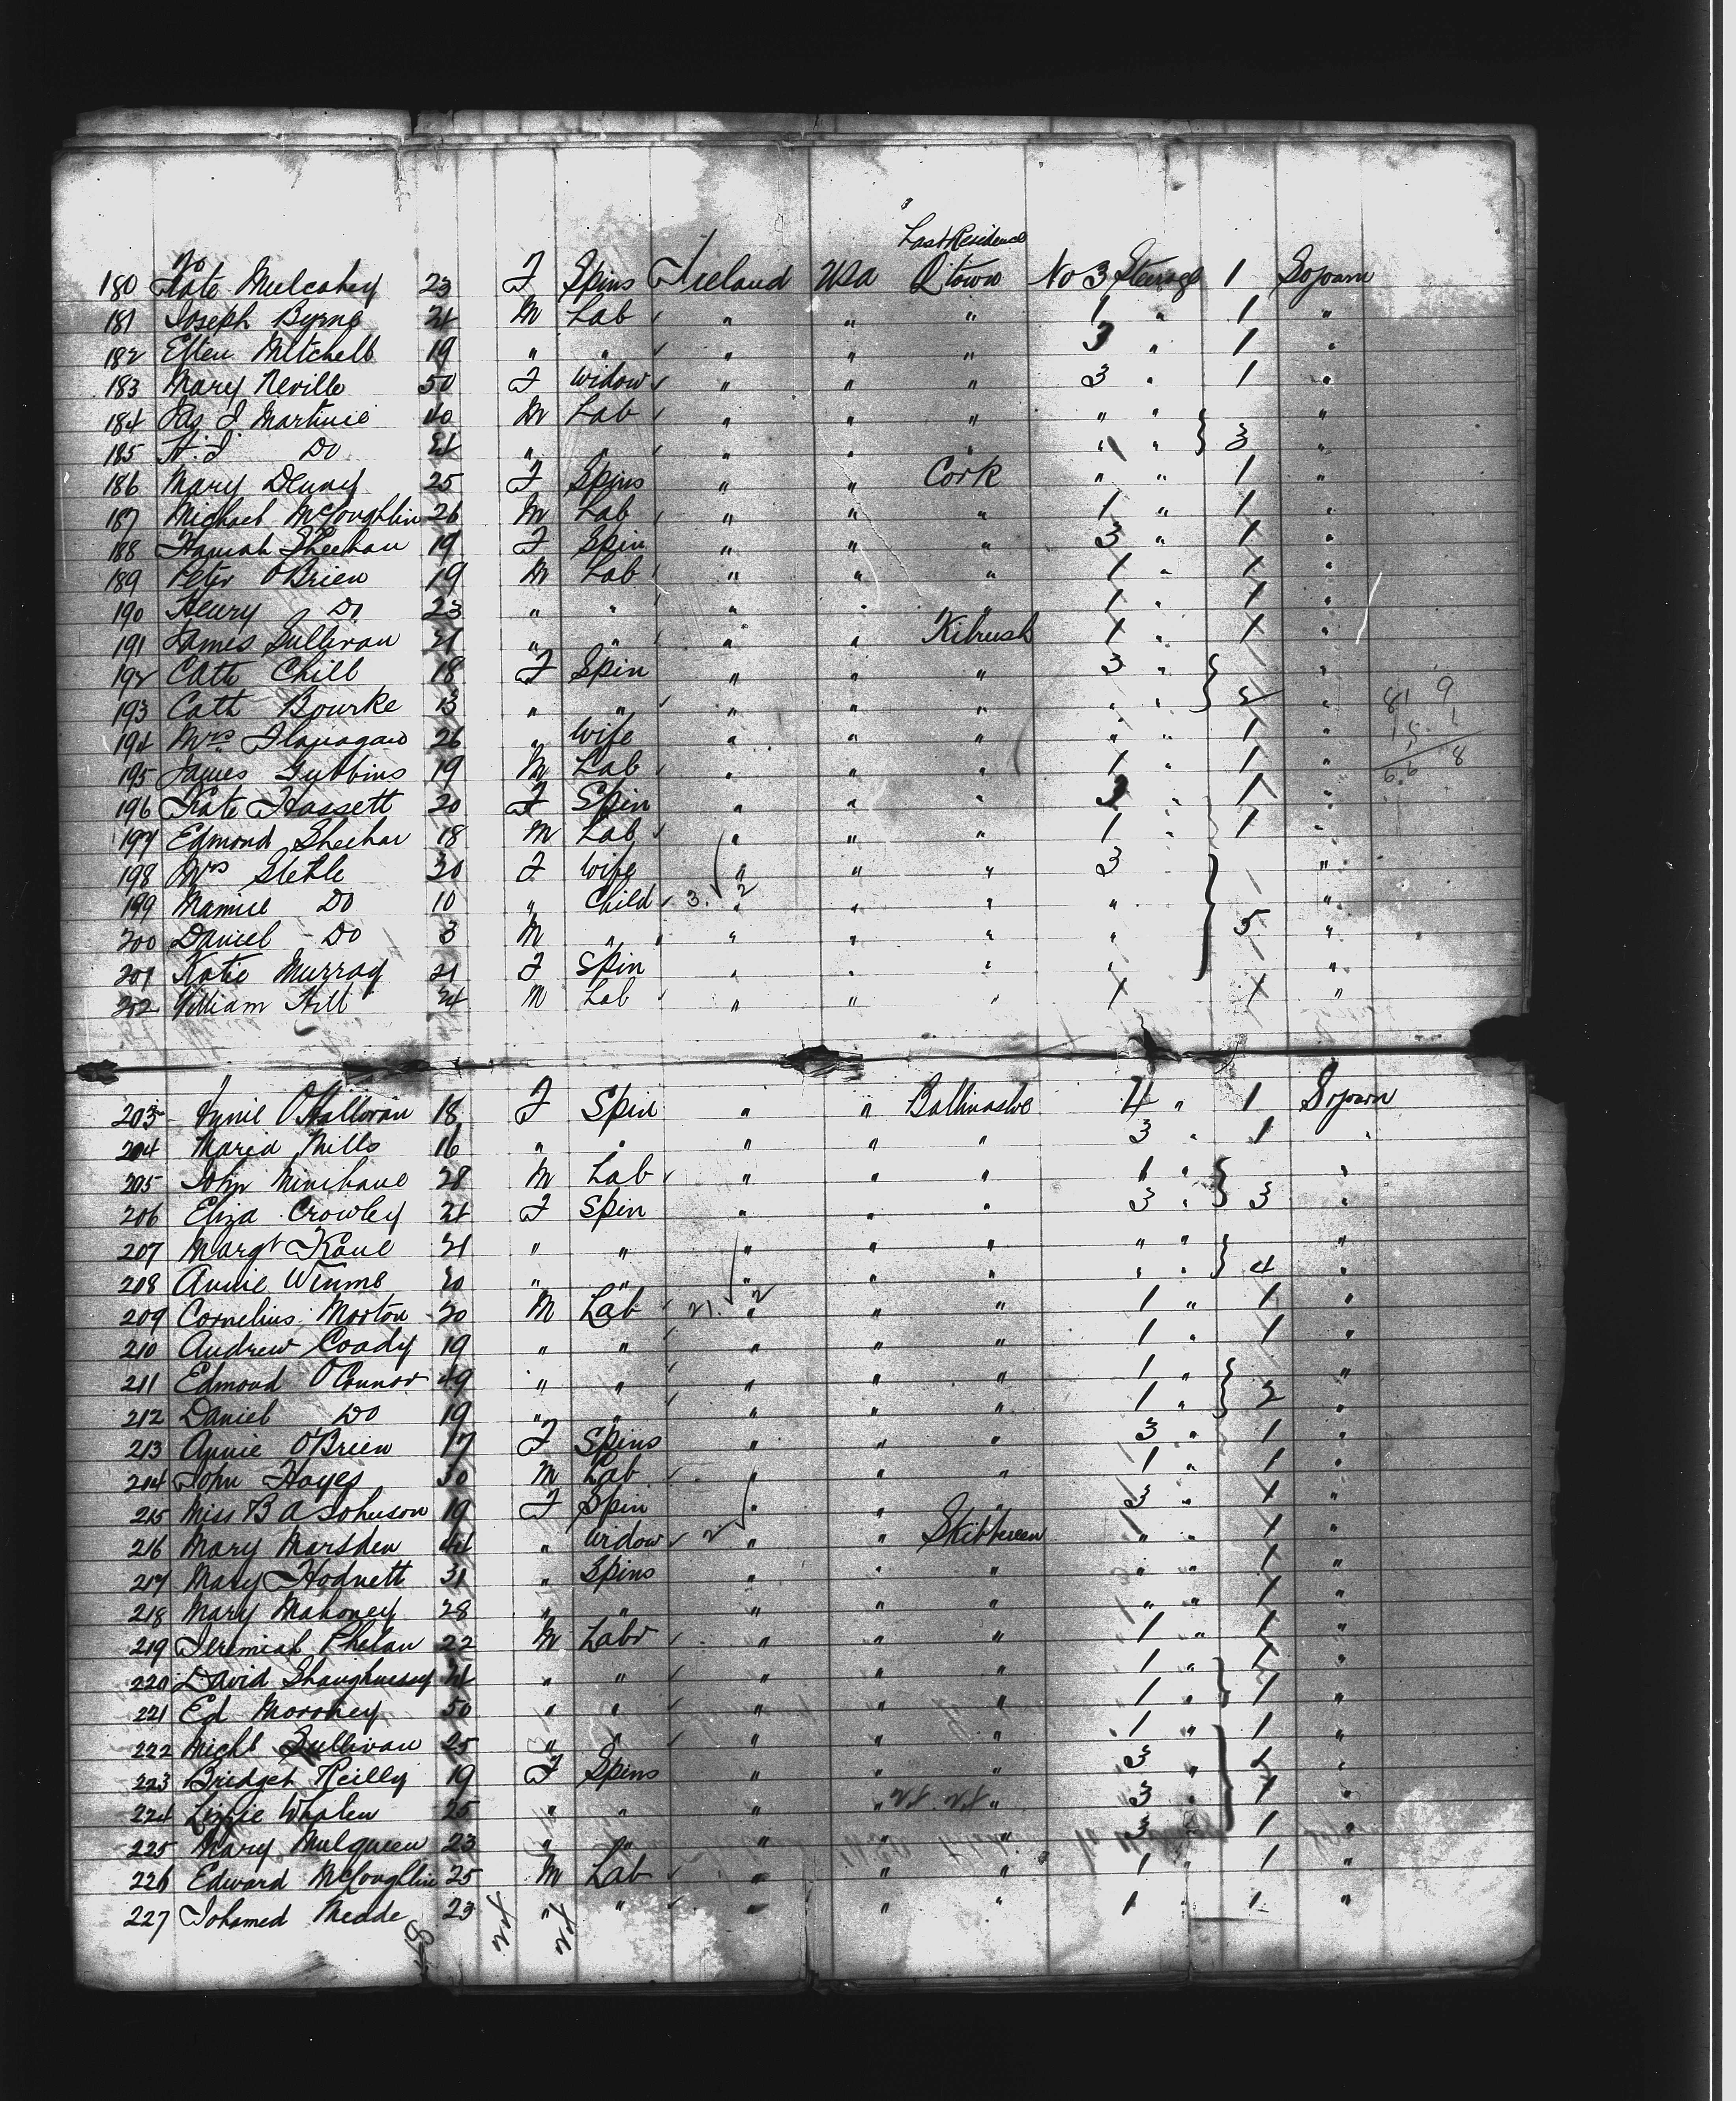 Last Residence
No
180 Kate Mulcahey 23 F Spins Ireland USA Qtown No 3 Steerage 1 Sojourn
181 Joseph Byrne 21 M Lab " " " 1 " 1 "
182 Ellen Mitchell 19 " " " " " 3 " 1 "
183 Mary Neville 50 F Widow " " " 3 " 1 "
184 Jas J Martinie 40 M Lab " " " " " "
185 H. J. Do " " " " " " " 3 "
186 Mary Denny 25 F Spins " " Cork " " 1 "
187 Michael McCoughlin 26 M Lab " " " 1 " 1 "
188 Hannah Sheehan 19 F Spin " " " 3 " 1 "
189 Peter O'Brien 19 M Lab " " " 1 " 1 "
190 Henry Do 23 " " " " " 1 " 1 "
191 James Sullivan 21 " " " " Kilrush 1 " 1 "
192 Cath Chill 18 F Spin " " " 3 " "
193 Cath Bourke 13 " " " " " " " 2 "
194 Mrs Flanagan 26 " Wife " " " " " 1 "
195 James Gubbins 19 M Lab " " " 1 " 1 "
196 Kate Hassett 20 F Spin " " " 3 " 1 "
197 Edmond Sheehan 18 M Lab " " " 1 " 1 "
198 Mrs Stehle 30 F Wife " " " 3 "
199 Mamie Do 10 " Child 3. 2 " " " " "
200 Daniel Do 3 M " " " " " 5 "
201 Katie Murray 21 F Spin " " " " "
202 William Hill 24 M Lab " " " 1 1 "
203 Annie O'Halloran 18 F Spin " " Ballinasloe 4 " 1 Sojourn
204 Maria Mills 16 " " " " " 3 " 1 "
205 John Minihane 28 M Lab " " " 1 " "
206 Eliza Crowley 21 F Spin " " " 3 " 3 "
207 Margt Kane 21 " " " " " " " "
208 Annie Wimms 20 " " " " " " " 4 "
209 Cornelius Morton 20 M Lab 21. 2 " " " 1 " 1 "
210 Andrew Coady 19 " " " " " 1 " 1 "
211 Edmond O'Connor 49 " " " " " 1 " "
212 Daniel Do 19 " " " " " 1 " 2 "
213 Annie O'Brien 17 F Spins " " " 3 " 1 "
214 John Hayes 30 M Lab " " " 1 " 1 "
215 Miss B A Johnson 19 F Spin " " " 3 " 1 "
216 Mary Marsden 44 " Widow 2 " " Skibbereen " " 1 "
217 Mary Hodnett 31 " Spins " " " " " 1 "
218 Mary Mahoney 28 " " " " " " " 1 "
219 Jeremiah Phelan 22 M Labr " " " 1 " 1 "
220 David Shaughnessy " " " " " 1 " 1 "
221 Ed Morohey 50 " " " " " 1 " 1 "
222 Michl Sullivan 25 " " " " " 1 " 1 "
223 Bridget Reilly 19 F Spins " " " 3 " "
224 Lizzie Whalen 25 " " " " " 3 " 1 "
225 Mary Mulqueen 23 " " " " " 3 1 "
226 Edward McCoughlin 25 M Lab " " " 1 " 1 "
227 Johamed Meade 23 " " " " " 1 " 1 "